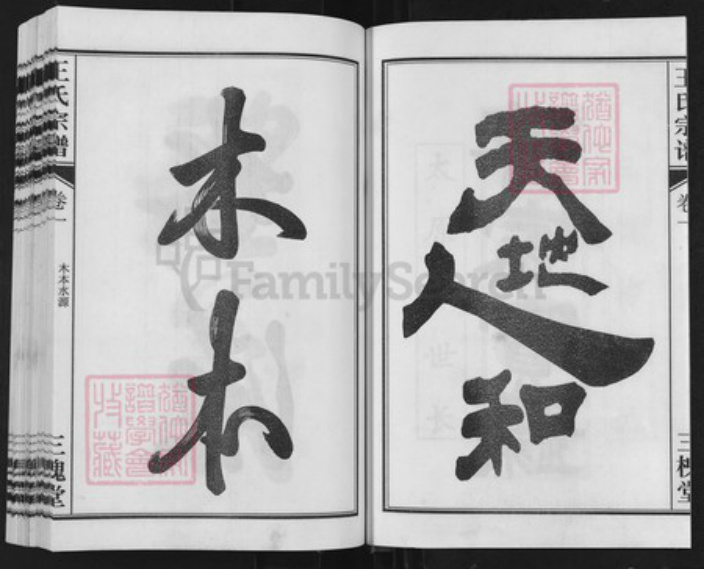 天地人和
王氏宗谱
卷一
三槐堂
木本
王氏宗谱
卷一
木本水源
三槐堂
FamilySearch